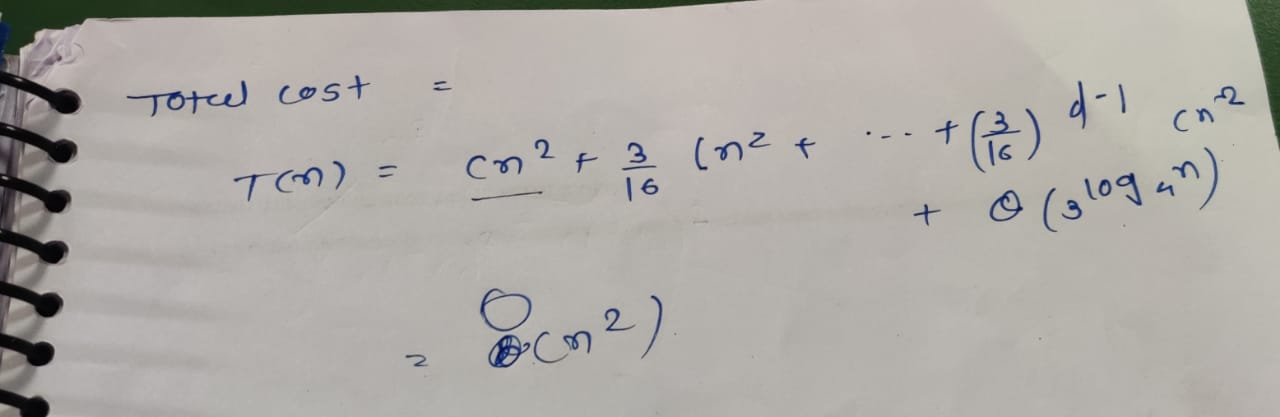 Total cost =
T(n) = cn² + 3/16 cn² + ... + (3/16)^(d-1) cn²
+ Θ(3^(log₄n))
= O(n²)